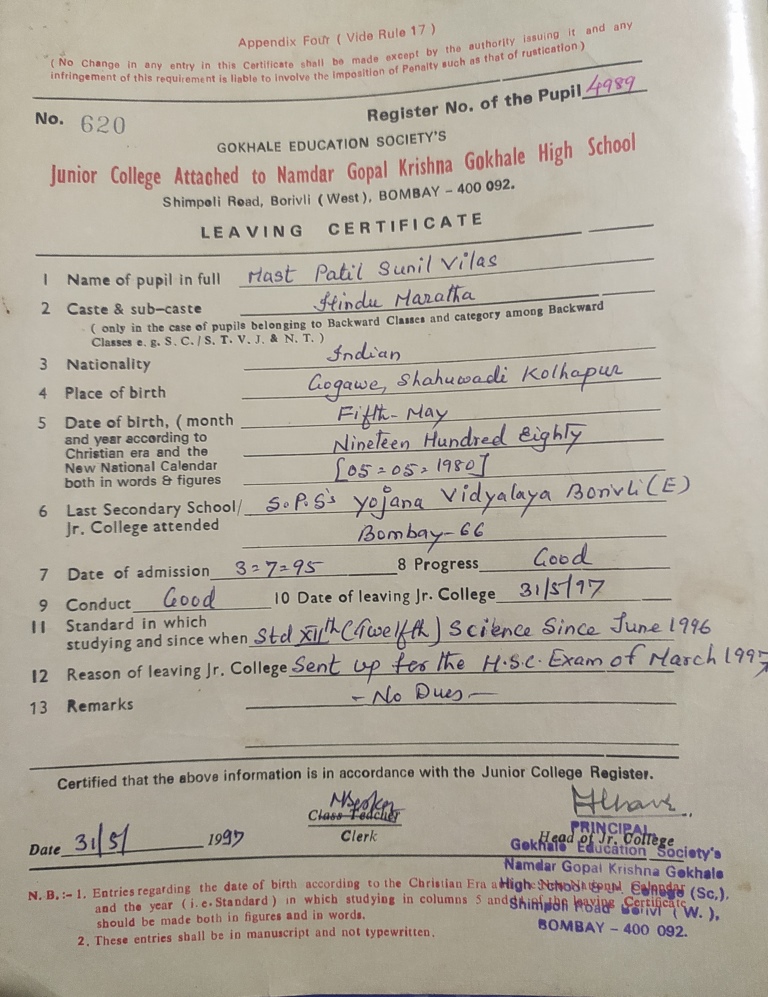 Appendix Four ( Vide Rule 17 )
( No Change in any entry in this Certificate shall be made except by the authority issuing it and any
infringement of this requirement is liable to involve the imposition of Penalty such as that of rustication )
No. 620 Register No. of the Pupil 4989
GOKHALE EDUCATION SOCIETY'S
Junior College Attached to Namdar Gopal Krishna Gokhale High School
Shimpoli Road, Borivli ( West ), BOMBAY – 400 092.
LEAVING CERTIFICATE
1 Name of pupil in full Mast Patil Sunil Vilas
2 Caste & sub-caste Hindu Maratha
( only in the case of pupils belonging to Backward Classes and category among Backward
Classes e. g. S. C. / S. T. V. J. & N. T. )
3 Nationality Indian
4 Place of birth Gogawe, Shahuwadi Kolhapur
5 Date of birth, ( month Fifth - May
and year according to
Christian era and the Nineteen Hundred Eighty
New National Calendar [05=05=1980]
both in words & figures
6 Last Secondary School/ S.P.S's Yojana Vidyalaya Borivli (E)
Jr. College attended Bombay-66
7 Date of admission 3=7=95 8 Progress Good
9 Conduct Good 10 Date of leaving Jr. College 31/5/97
11 Standard in which
studying and since when Std XIIth (Twelfth) Science Since June 1996
12 Reason of leaving Jr. College Sent up for the H.S.C. Exam of March 1997
13 Remarks - No Dues -
Certified that the above information is in accordance with the Junior College Register.
Class Teacher
Date 31/5/ 1997 Clerk
PRINCIPAL
Head of Jr. College
Gokhale Education Society's
Namdar Gopal Krishna Gokhale
High School & Jr. College (Sc.),
Shimpoli Road Borivli ( W. ),
BOMBAY – 400 092.
N. B. :- 1. Entries regarding the date of birth according to the Christian Era and the National Calendar
and the year ( i. e. Standard ) in which studying in columns 5 and of the leaving Certificate
should be made both in figures and in words.
2. These entries shall be in manuscript and not typewritten.